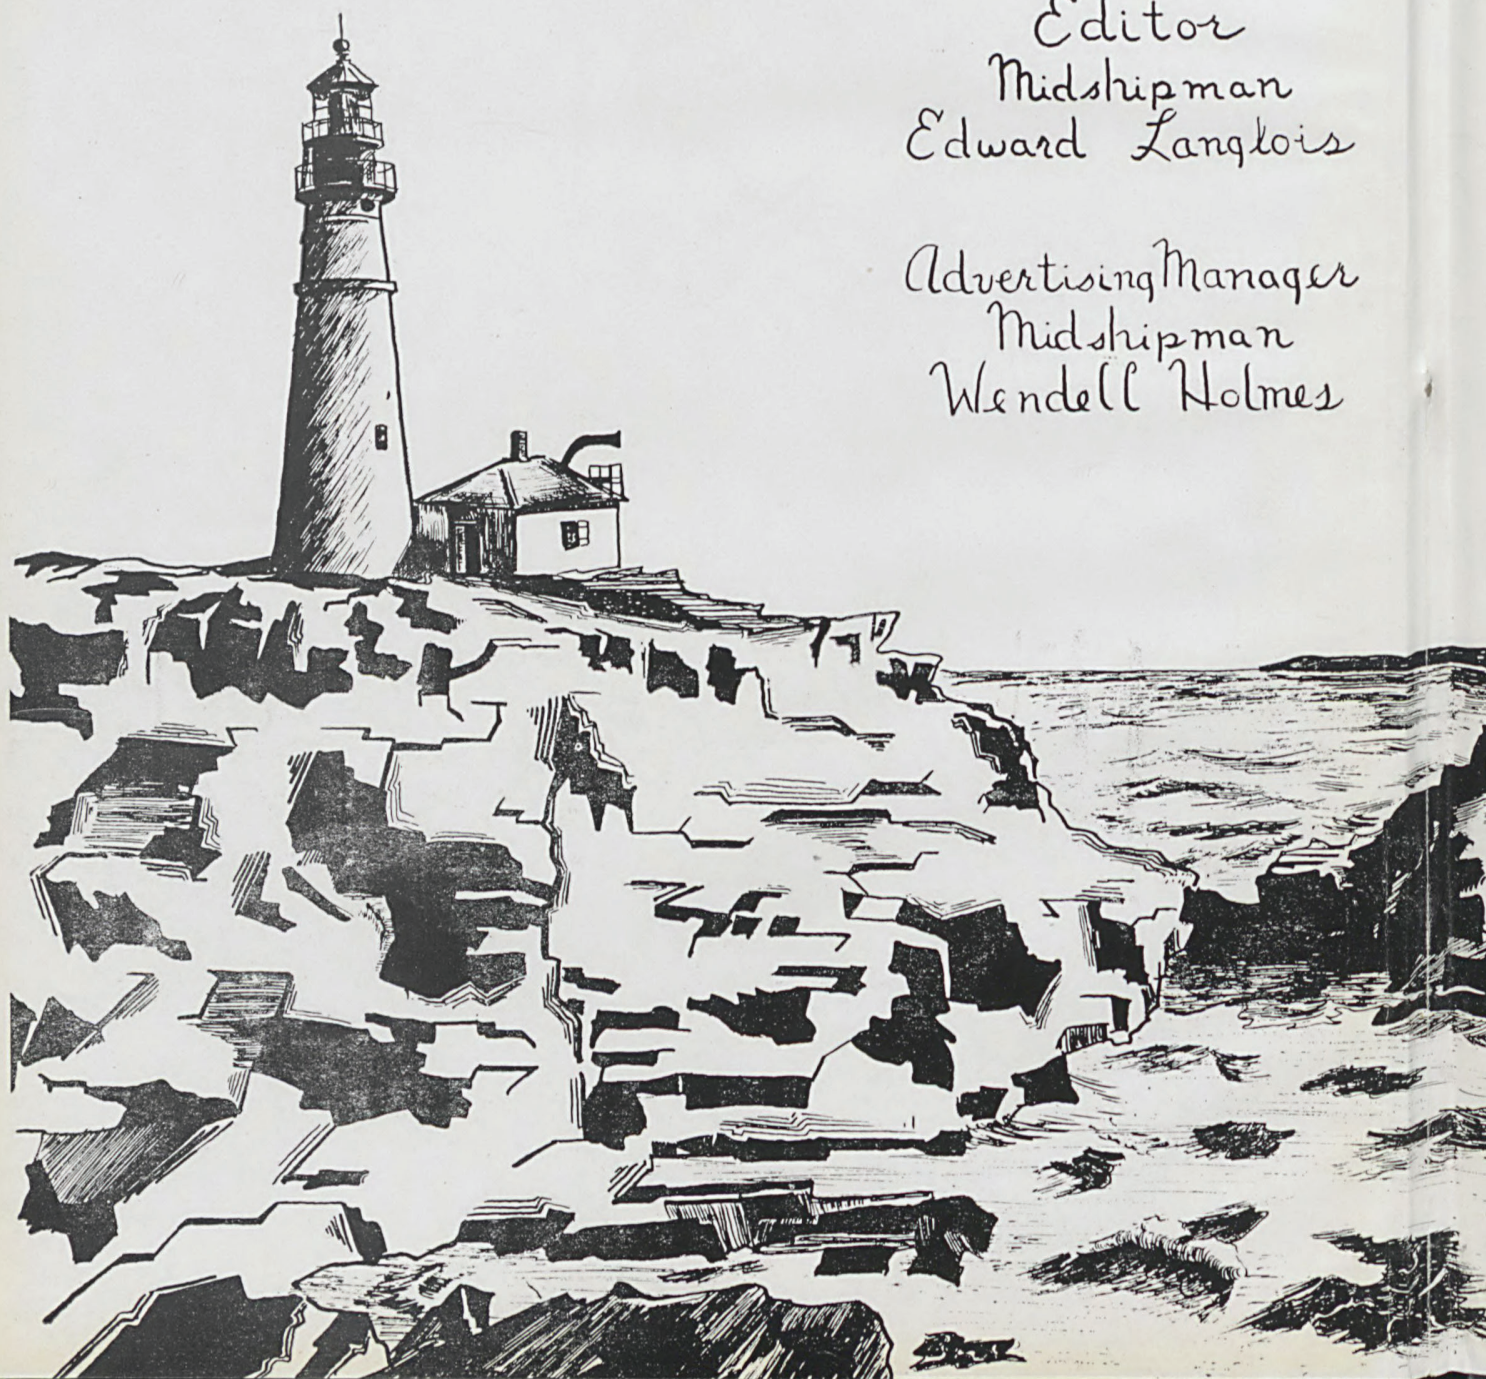 Editor
Midshipman
Edward Langlois
Advertising Manager
Midshipman
Wendell Holmes